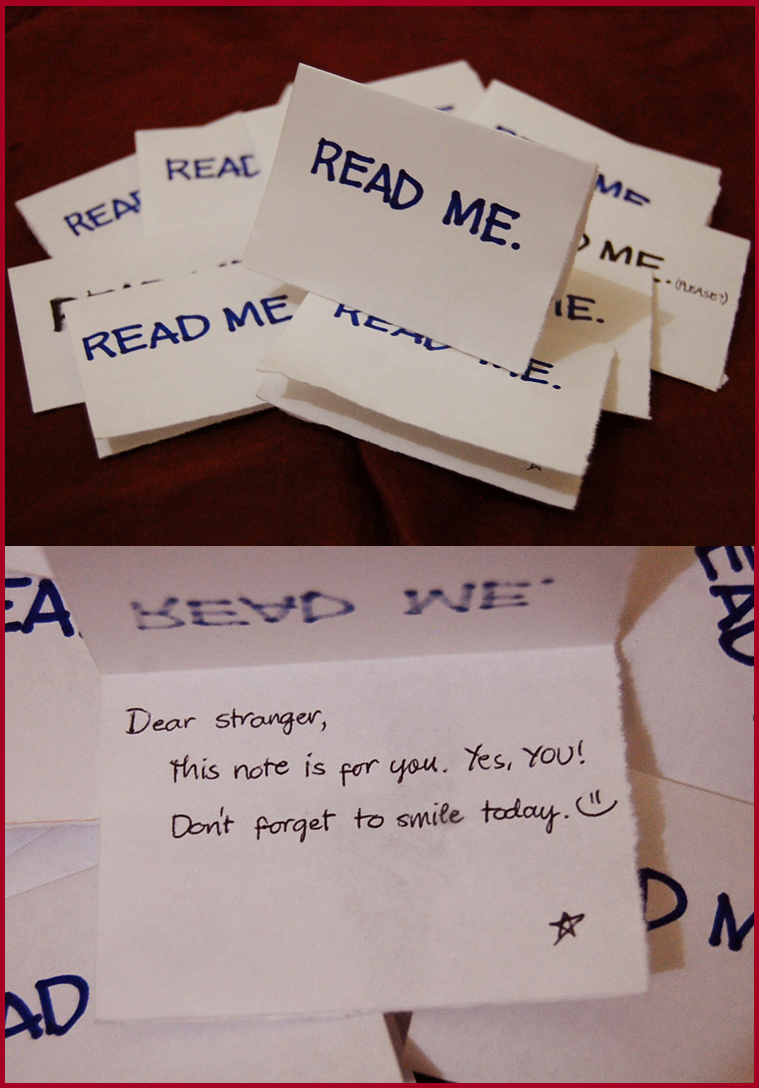 READ ME.
READ
READ
ME.
ME. (PLEASE?)
READ ME
READ ME.
READ ME.
Dear stranger,
this note is for you. Yes, YOU!
Don't forget to smile today.
EA
EAD
D M
AD